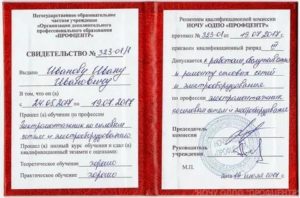 Негосударственное образовательное
частное учреждение
«Организация дополнительного
профессионального образования
«ПРОФЦЕНТР»
СВИДЕТЕЛЬСТВО № 323-01/1
Выдано Иванову Ивану
Ивановичу
В том, что он (а)
с 24.05.2017 по 19.07.2017
Прошел (а) обучение по профессии
Электромонтажник по силовым
сетям и электрооборудованию
Прошел (а) полный курс обучения и сдал (а)
квалификационный экзамен с оценками:
Теоретическое обучение хорошо
Практическое обучение хорошо
Решением квалификационной комиссии
НОЧУ «ОДПО «ПРОФЦЕНТР»
протокол № 323-01 от 19.07.2017
присвоен квалификационный разряд
Допускается к работам
и ремонту силовых сетей
и электрооборудования
по профессии электромонтажник
по силовым сетям и электрооборудованию
Председатель
комиссии
Руководитель
учреждения
М.П.
Дата выдачи 19 июля 2017 г.